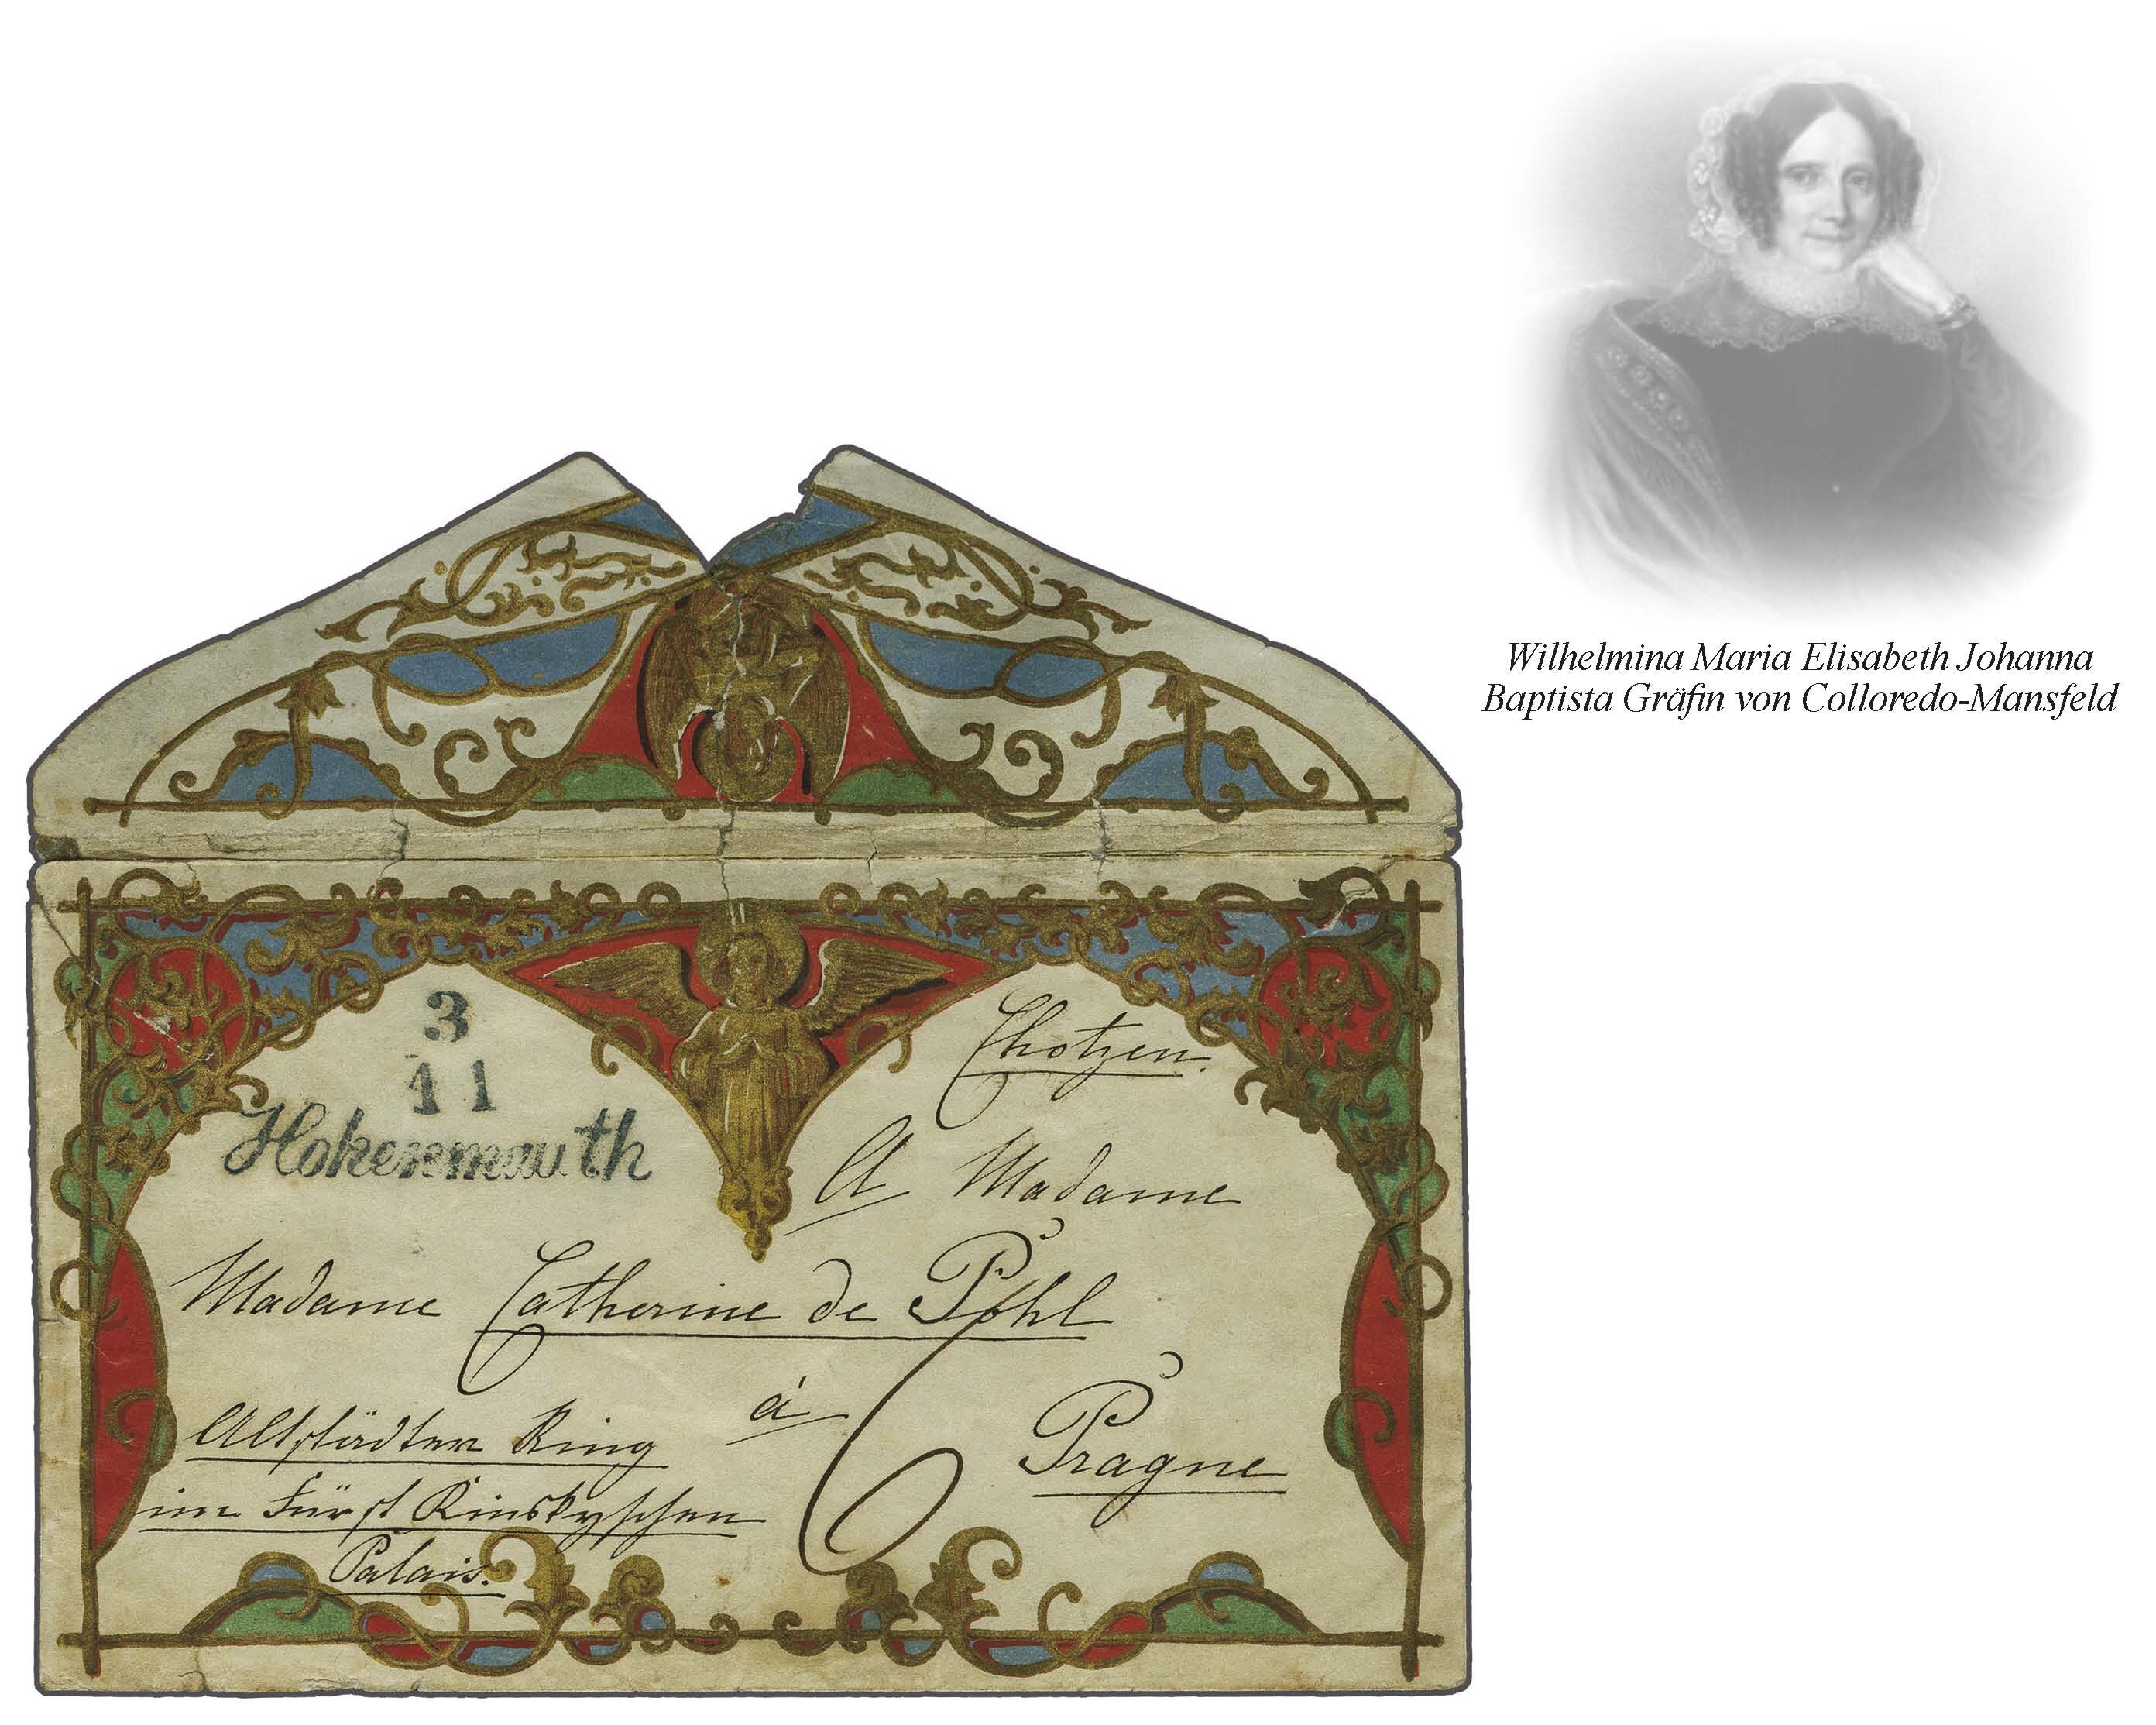 Wilhelmina Maria Elisabeth Johanna
Baptista Gräfin von Colloredo-Mansfeld
3
11
Hohenmauth
Chotzen.
A Madame
Madame Catherine de Pohl
à
Prague
Altstädter Ring
im Fürst Kinskyschen
Palais.
6